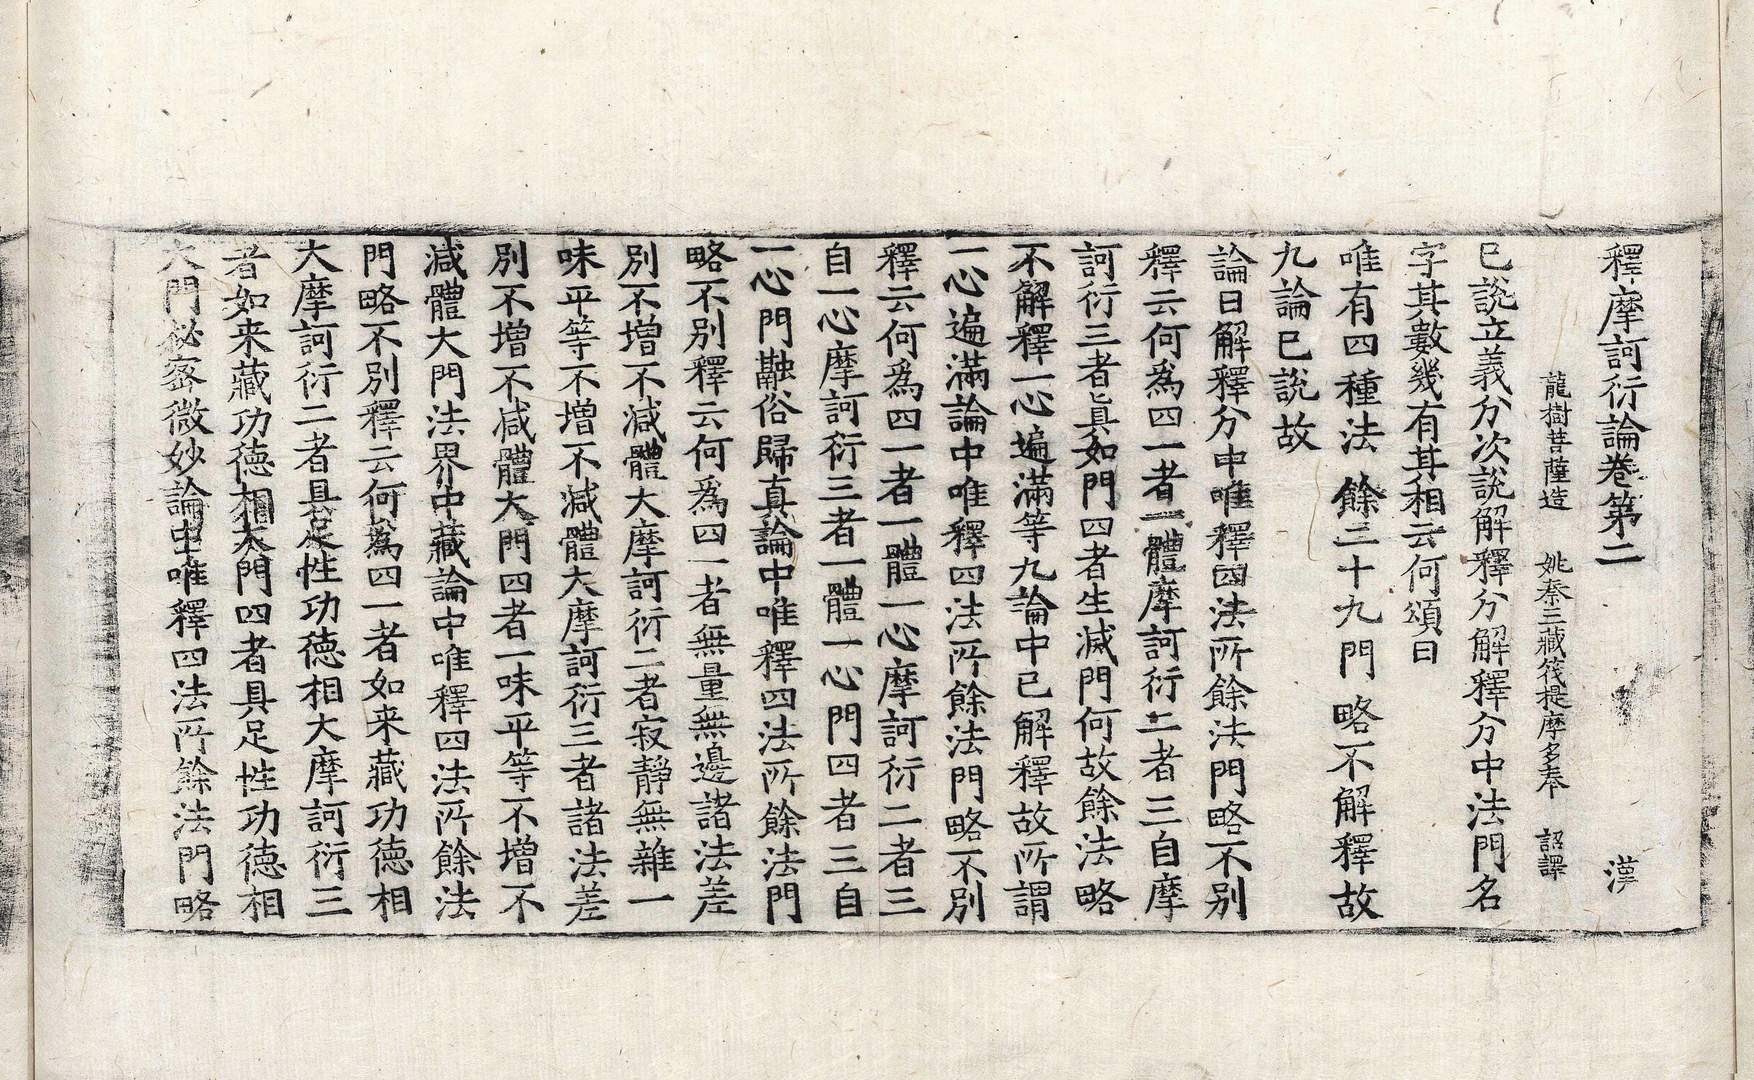 釋摩訶衍論卷第二 漢
龍樹菩薩造 姚秦三藏筏提摩多奉 詔譯
已說立義分次說解釋分解釋分中法門名
字其數幾有其相云何頌曰
唯有四種法 餘三十九門 略不解釋故
九論已說故
論曰解釋分中唯釋四法所餘法門略不別
釋云何為四一者一體摩訶衍二者三自摩
訶衍三者真如門四者生滅門何故餘法略
不解釋一心遍滿等九論中已解釋故所謂
一心遍滿論中唯釋四法所餘法門略不別
釋云何為四一者一體一心摩訶衍二者三
自一心摩訶衍三者一體一心門四者三自
一心門融俗歸真論中唯釋四法所餘法門
略不別釋云何為四一者無量無邊諸法差
別不增不減體大摩訶衍二者寂靜無雜一
味平等不增不減體大摩訶衍三者諸法差
別不增不減體大門四者一味平等不增不
減體大門法界中藏論中唯釋四法所餘法
門略不別釋云何為四一者如来藏功德相
大摩訶衍二者具足性功德相大摩訶衍三
者如来藏功德相大門四者具足性功德相
大門祕密微妙論中唯釋四法所餘法門略